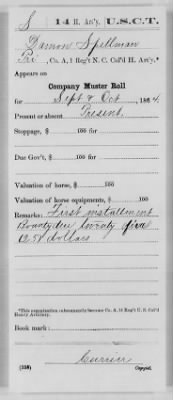 S 14 H. Art'y. U.S.C.T.
Damon Spellman
Pri, Co. A, 1 Reg't N. C. Col'd H. Art'y.*
Appears on
Company Muster Roll
for Sept & Oct, 1864.
Present or absent Present.
Stoppage, $ 100 for
Due Gov't, $ 100 for
Valuation of horse, $ 100
Valuation of horse equipments, $ 100
Remarks: First installment
Bounty due twenty five
dollars
*This organization subsequently became Co. A, 14 Reg't U. S. Col'd Heavy Artillery.
Book mark:
Currier
(358) Copyist.